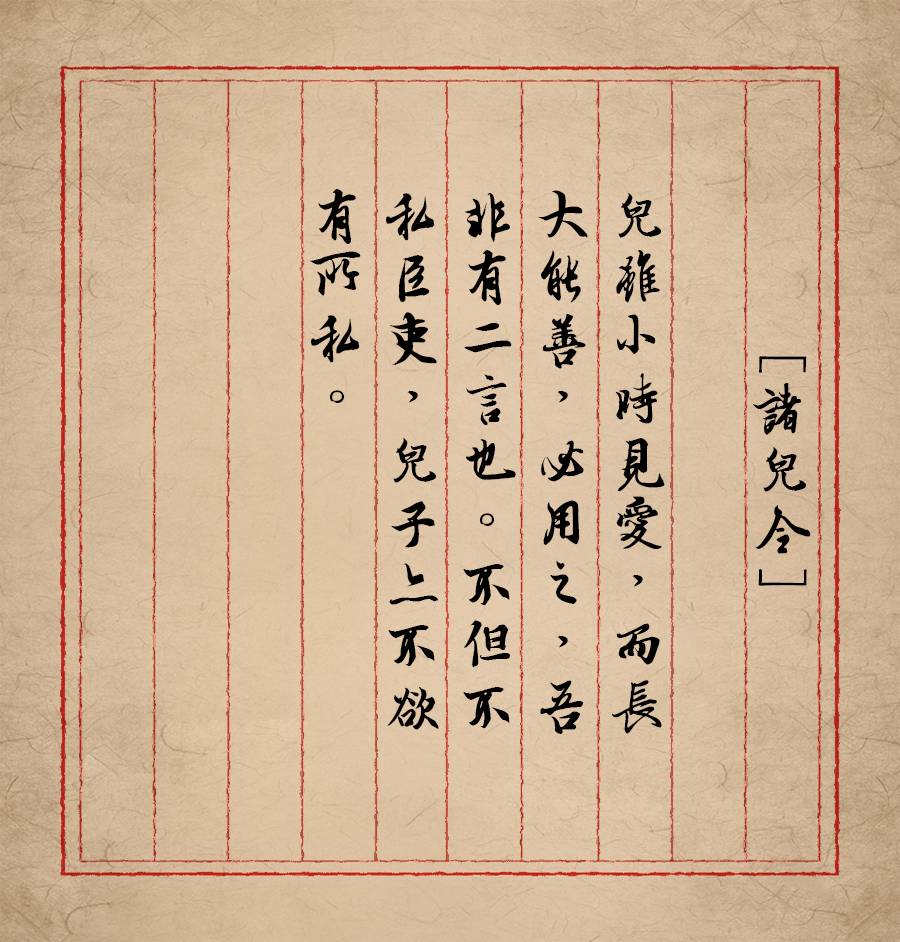 ［諸兒令］
兒雖小時見愛，而長
大能善，必用之，吾
非有二言也。不但不
私臣吏，兒子亦不欲
有所私。